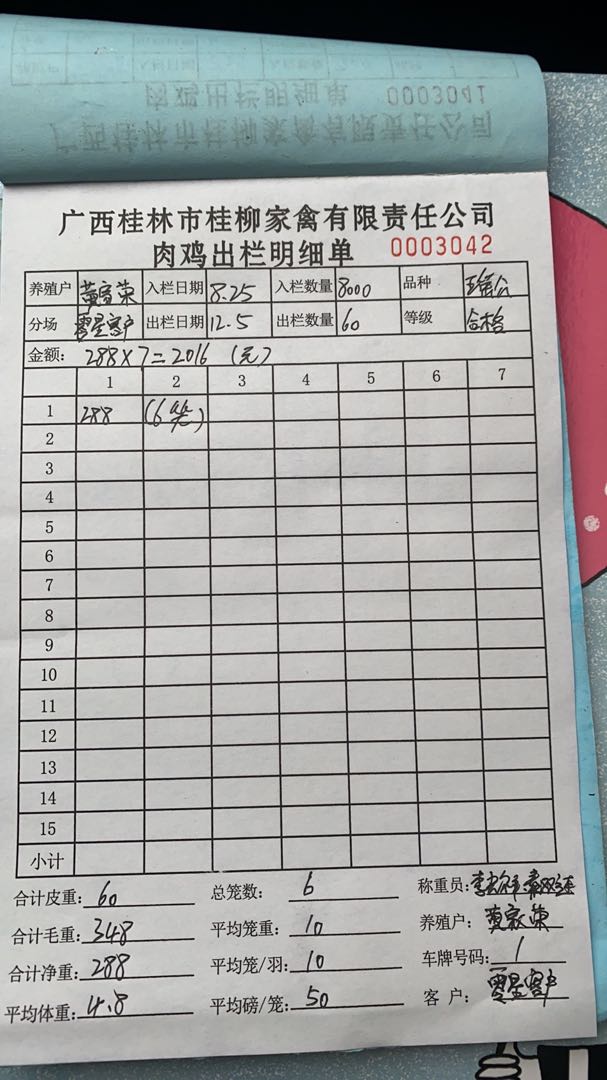 肉鸡出栏明细单 0003041
广西桂林市桂柳家禽有限责任公司
广西桂林市桂柳家禽有限责任公司
肉鸡出栏明细单 0003042
养殖户 黄家荣 入栏日期 8.25 入栏数量 8000 品种
分场 零星客户 出栏日期 12.5 出栏数量 60 等级 合格
金额: 288×7=2016 (元)
1 2 3 4 5 6 7
1 288 (6笼)
2
3
4
5
6
7
8
9
10
11
12
13
14
15
小计
合计皮重: 60 总笼数: 6 称重员:
合计毛重: 348 平均笼重: 10 养殖户: 黄家荣
合计净重: 288 平均笼/羽: 10 车牌号码: 1
平均体重: 4.8 平均磅/笼: 50 客户: 零星客户